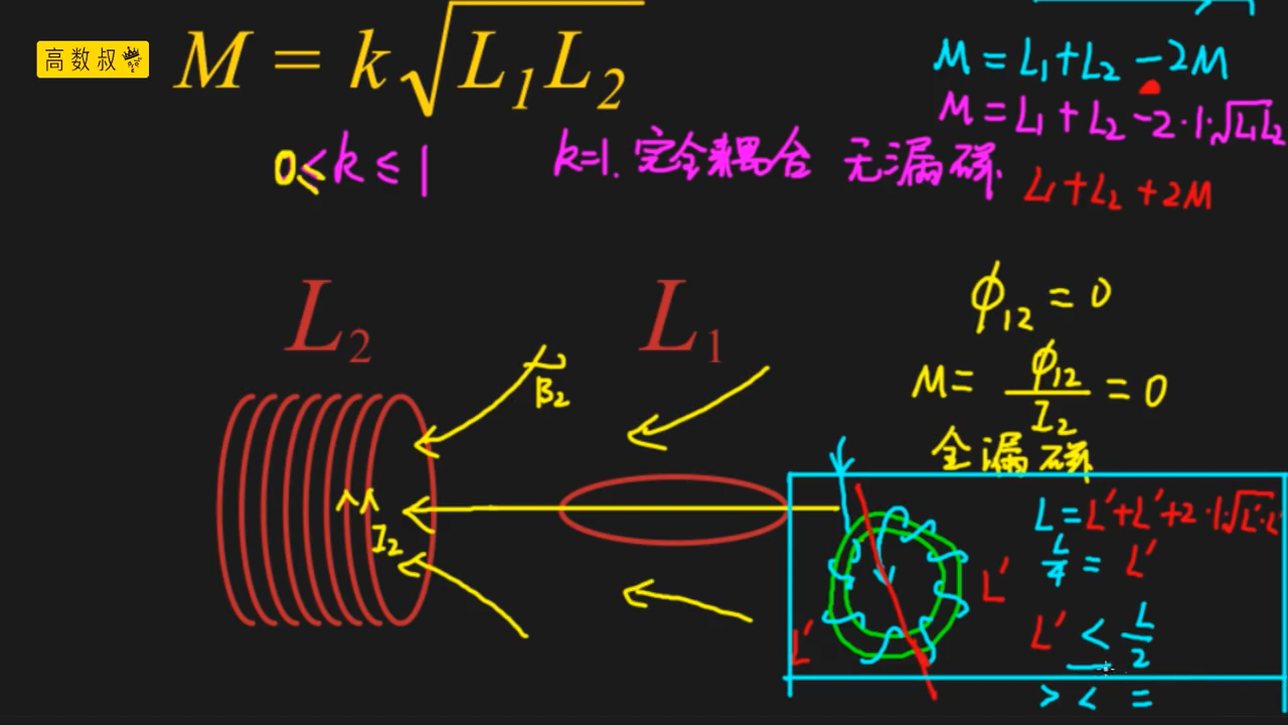 高数叔
M = k√L₁L₂
0 ≤ k ≤ 1
k=1. 完全耦合 无漏磁.
M = L₁ + L₂ - 2M
M = L₁ + L₂ - 2·1·√L₁L₂
L₁ + L₂ + 2M
L₂
L₁
ϕ₁₂ = 0
M = ϕ₁₂/I₂ = 0
全漏磁
B₂
I₂
L'
L'
L = L' + L' + 2·1·√L'·L'
L/4 = L'
L' < L/2
> < =